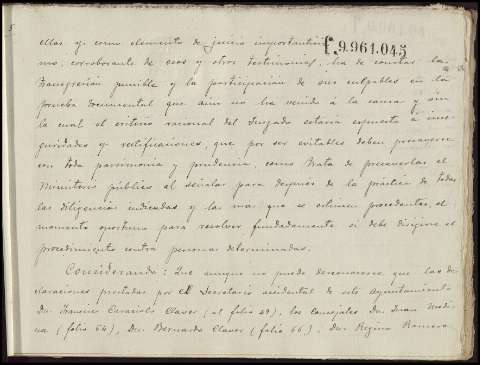 f.9.961.045
ellas y como elemento de juicio importantísi-
mo, corroborante de esos y otros testimonios, ha de constar la
transgresión punible y la participación de sus culpables en la
prueba documental que aun no ha venido a la causa y sin
la cual el criterio racional del Juzgado estaria expuesto a inse-
guridades y rectificaciones, que por ser evitables deben procurarse
con toda parsimonia y prudencia, como trata de precaverlas el
Ministerio público al señalar para despues de la práctica de todas
las diligencias indicadas y las mas que se estimen procedentes, el
momento oportuno para resolver fundadamente si debe dirigirse el
procedimiento contra personas determinadas.
Considerando: Que aunque no puede desconocerse que las de-
claraciones prestadas por el Secretario accidental de este Ayuntamiento
Dn. Francisco Claver (al folio 29), los Concejales Dn. Juan Medi-
na (folio 64), Dn. Bernardo Claver (folio 66), Dn. Regino Romero